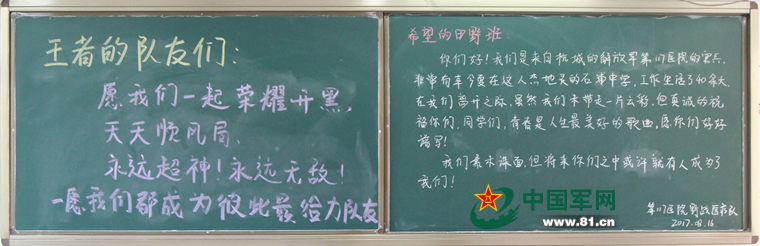 王者的队友们：
愿我们一起荣耀开黑，
天天顺风局、
永远超神！永远无敌！
一愿我们都成为彼此最给力队友
希望的田野班：
你们好！我们是来自杭城的解放军第117医院的官兵，
非常有幸今夏在这人杰地灵的石埠中学，工作生活了40余天，
在我们离开之际，虽然我们未带走一片云彩，但真诚的祝
福你们，同学们，青春是人生最美好的歌曲，愿你们好好
谱写！
我们素未谋面，但将来你们之中或许就有人成为了
我们！
第117医院野战医疗队
2017.8.16
中国军网
www.81.cn